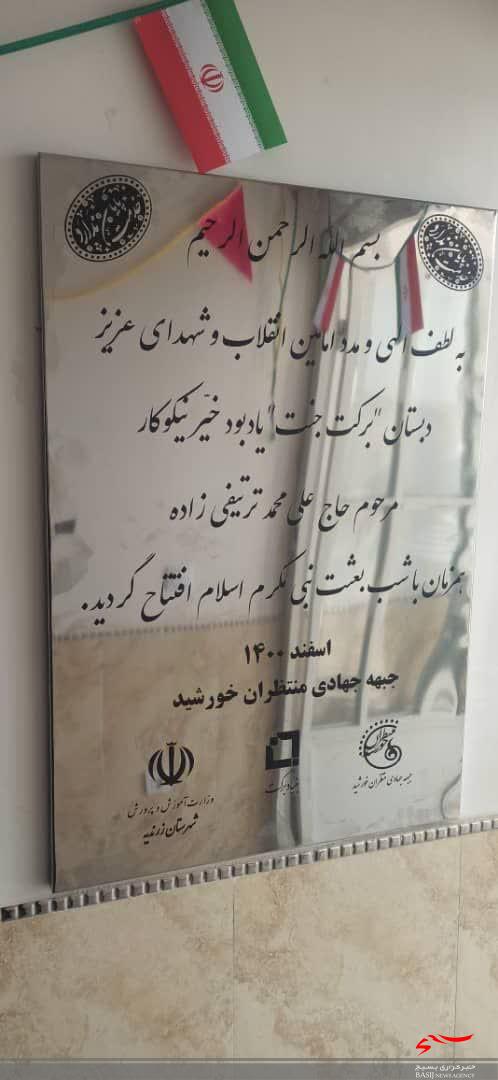 بسم الله الرحمن الرحیم
به لطف الهی و مدد امامین انقلاب و شهدای عزیز
دبستان "برکت جنت" یادبود خیّر نیکوکار
مرحوم حاج علی محمد ترتیفی زاده
همزمان با شب بعثت نبی مکرم اسلام افتتاح گردید.
اسفند ۱۴۰۰
جبهه جهادی منتظران خورشید
جبهه جهادی منتظران خورشید
بنیاد برکت
وزارت آموزش و پرورش
شهرستان زرندیه
خبرگزاری بسیج
BASIJ NEWS AGENCY